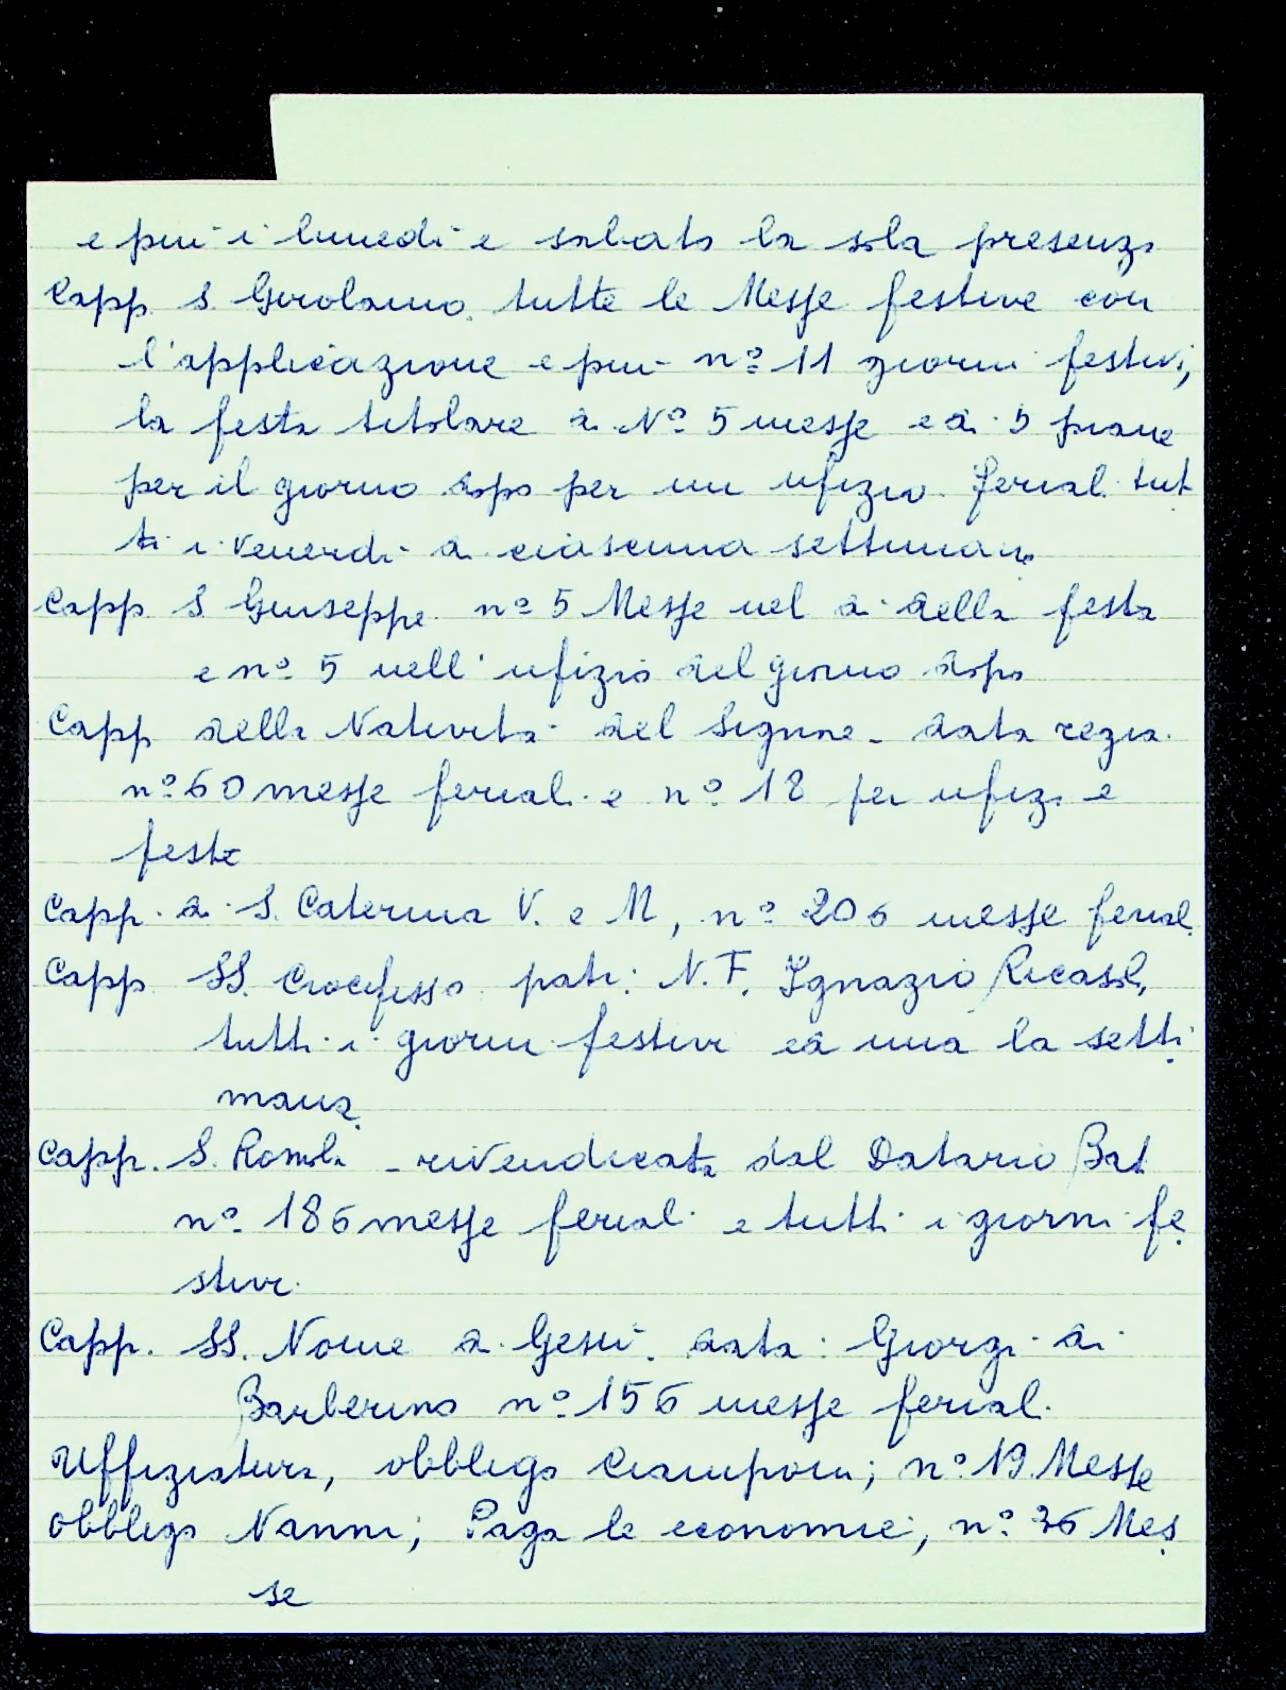 e più i lunedì e sabato la sola presenza
Capp. S. Girolamo. tutte le Messe festive con
l'applicazione e più n.º 11 giorni festivi,
la festa titolare di N.º 5 messe e di 5 piane
per il giorno dopo per un ufizio. feriali tut
ti i venerdì di ciascuna settimana
Capp S. Giuseppe. nº 5 Messe nel dì della festa
e nº 5 nell'ufizio del giorno dopo
Capp della Natività del Signore - data regia.
nº 60 messe feriali e nº 18 per ufizi e
feste
Capp. di S. Caterina V. e M, nº 206 messe feriali
Capp SS. Crocifisso pat: N. F. Ignazio Ricasoli,
tutti i giorni festivi ed una la setti
mana
Capp. S. Romolo - rivendicata dal Datario Bat
nº 186 messe feriali e tutti i giorni fe
stivi.
Capp. SS. Nome di Gesù. data: Giorgi di
Barberino nº 156 messe feriali.
Uffiziatura, obbligo Ciamponi; nº 19 Messe
obbligo Nanni; Paga le economie, nº 36 Mes
se